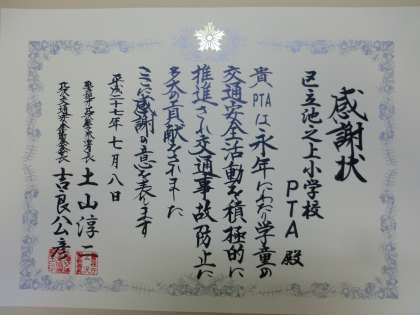 感謝状
区立池之上小学校
PTA殿
貴PTAは永年にわたり学童の
交通安全活動を積極的に
推進され交通事故防止に
多大の貢献をされました
ここに感謝の意を表します
平成二十七年七月八日
土山淳二
吉良公彦